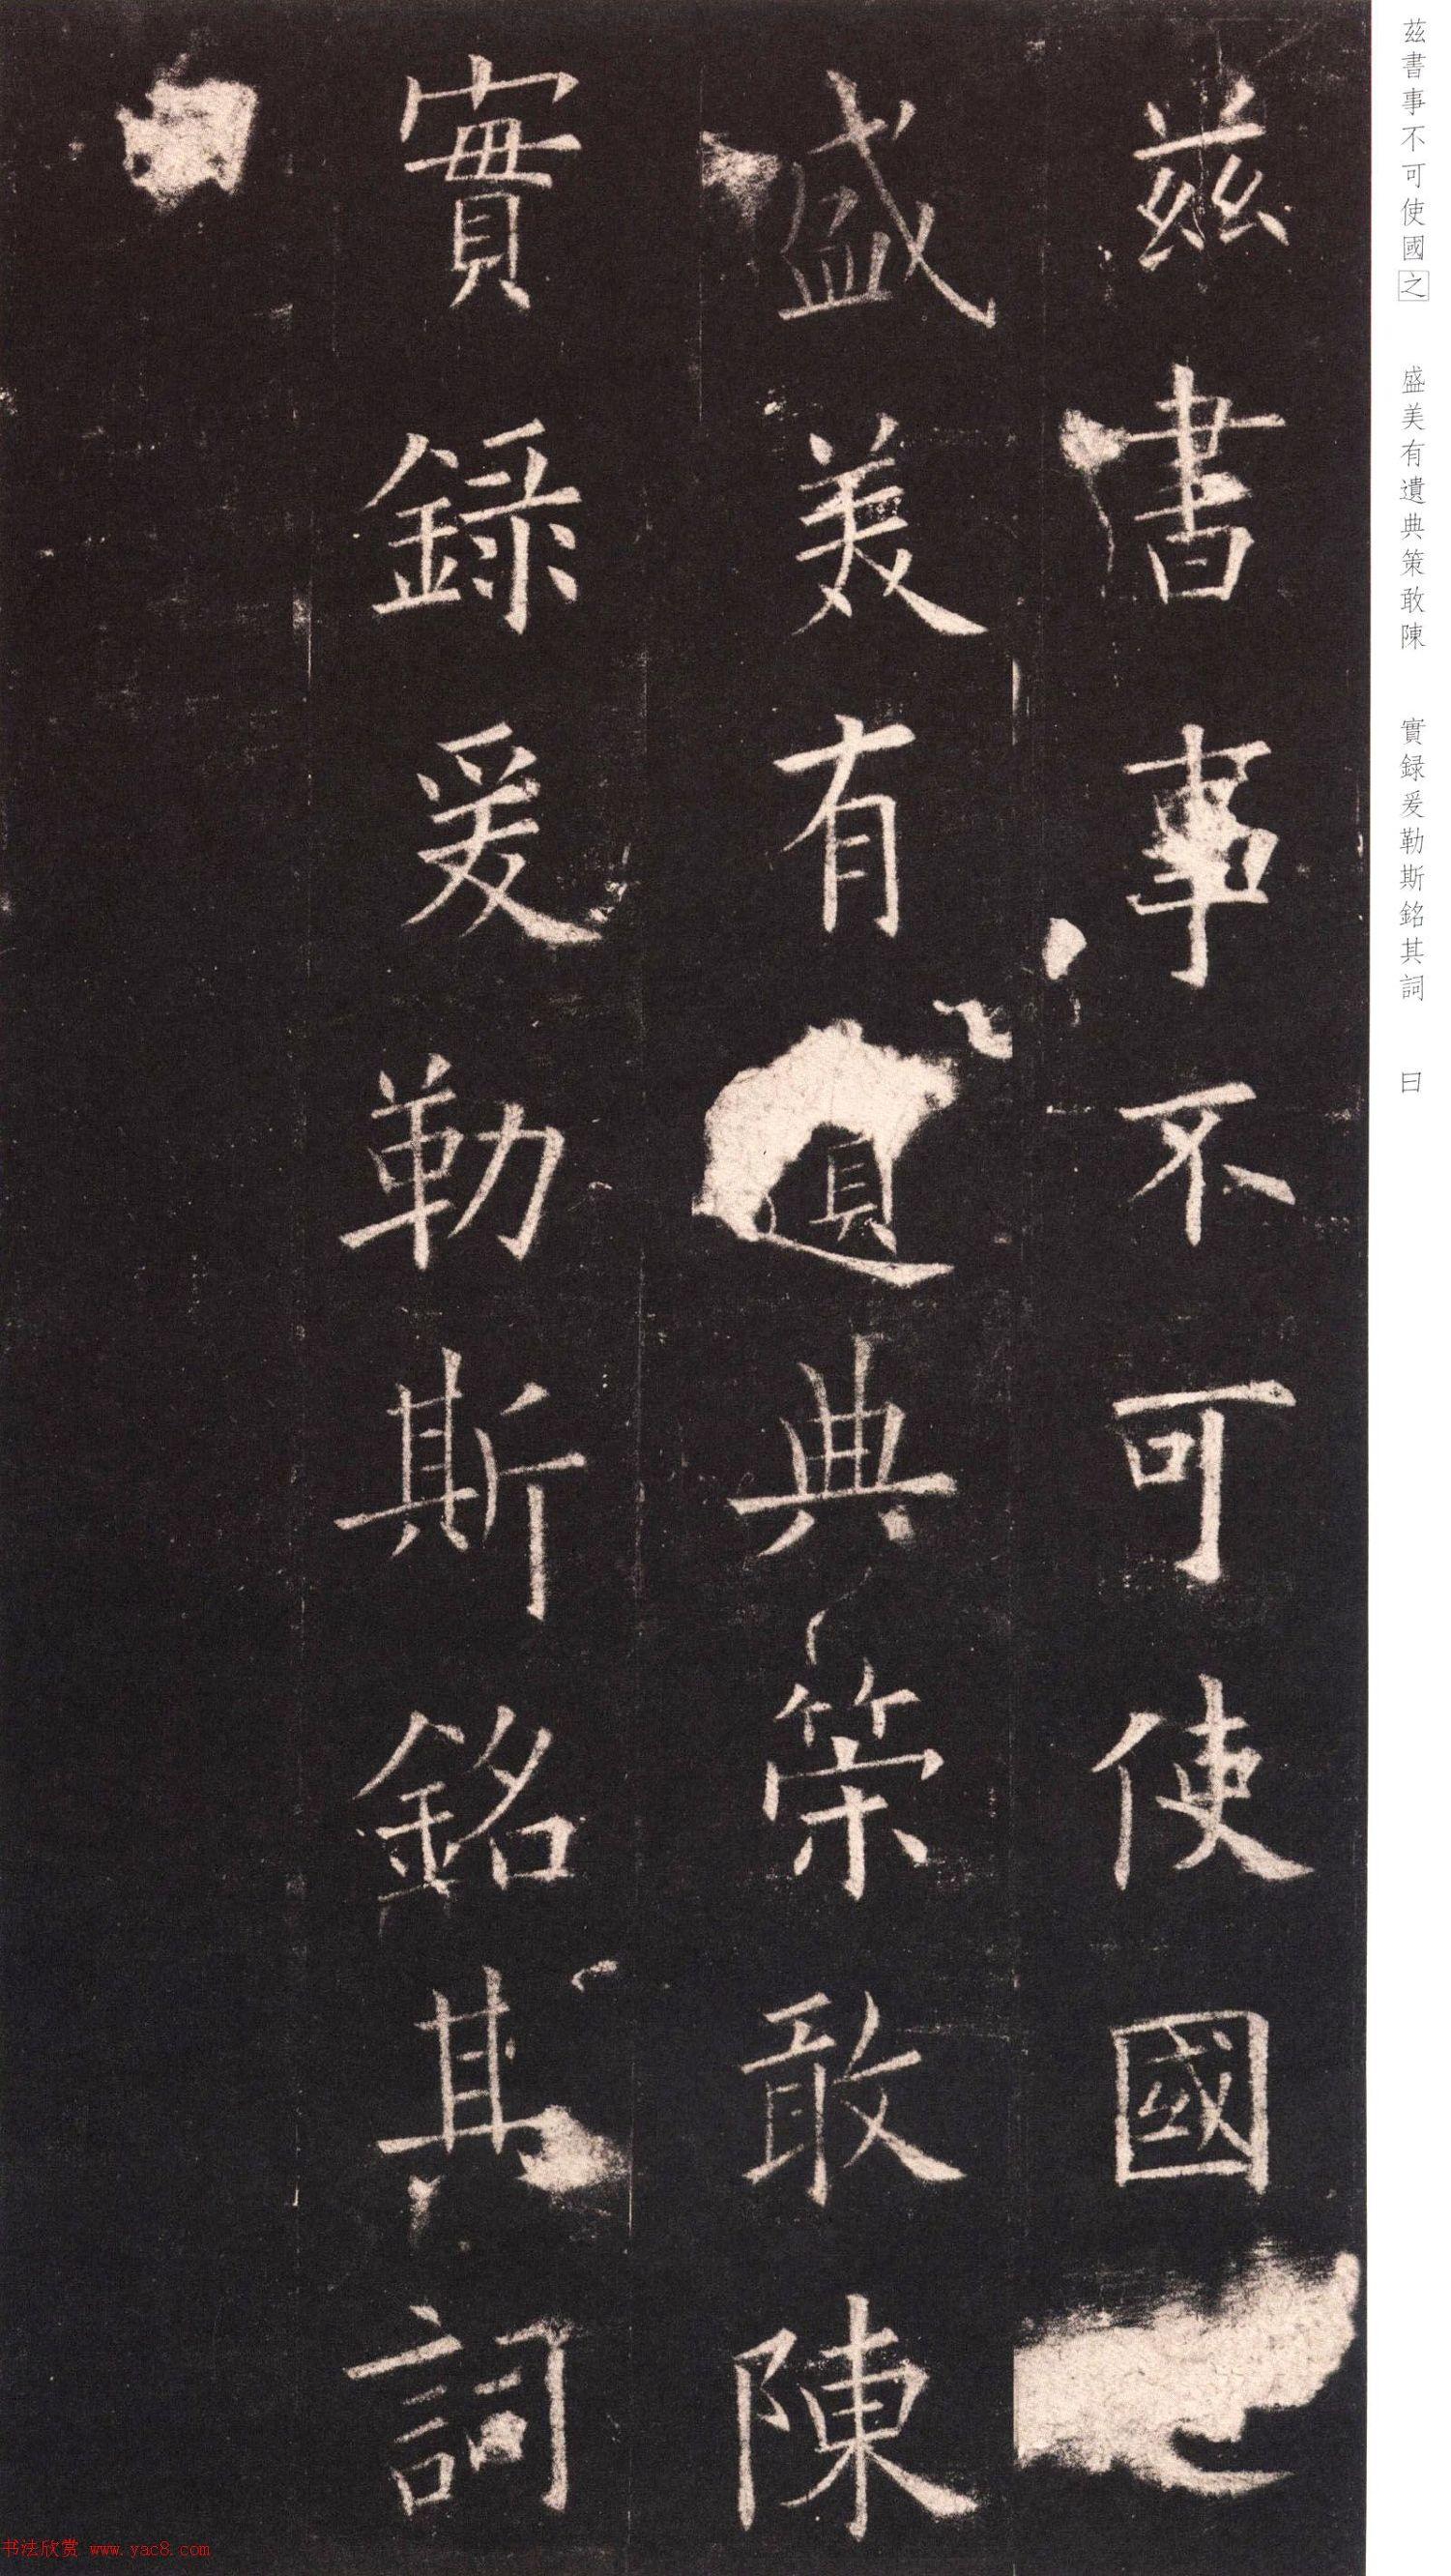 茲書事不可使國之
盛美有遺典策敢陳
實録爰勒斯銘其詞
曰
茲書事不可使國之 盛美有遺典策敢陳 實録爰勒斯銘其詞 曰
书法欣赏 www.yac8.com